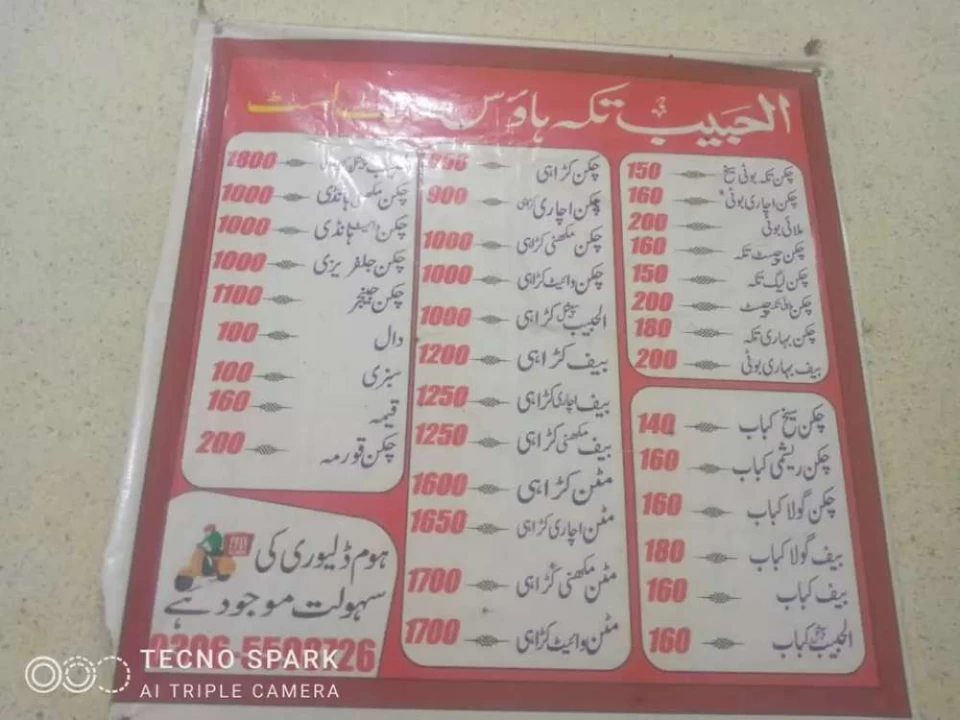 الحبیب تکہ ہاؤس لسٹ
چکن تکہ بوٹی سیخ 150
چکن اچاری بوٹی 160
ملائی بوٹی 200
چکن چیسٹ تکہ 160
چکن لیگ تکہ 150
چکن چیسٹ 200
چکن بہاری تکہ 180
بیف بہاری بوٹی 200
چکن سیخ کباب 140
چکن ریشمی کباب 160
چکن گولا کباب 160
بیف گولا کباب 180
بیف کباب 160
الحبیب سپیشل کباب 160
چکن کڑاہی
چکن اچاری کڑاہی 900
چکن مکھنی کڑاہی 1000
چکن وائیٹ کڑاہی 1000
الحبیب سپیشل کڑاہی 1000
بیف کڑاہی 1200
بیف اچاری کڑاہی 1250
بیف مکھنی کڑاہی 1250
مٹن کڑاہی 1600
مٹن اچاری کڑاہی 1650
مٹن مکھنی کڑاہی 1700
مٹن وائیٹ کڑاہی 1700
1800
چکن مکھنی ہانڈی 1000
چکن وائیٹ ہانڈی 1000
چکن جلفریزی 1000
چکن جینجر 1100
دال 100
سبزی 100
قیمہ 160
چکن قورمہ 200
ہوم ڈلیوری کی
سہولت موجود ہے
TECNO SPARK
AI TRIPLE CAMERA